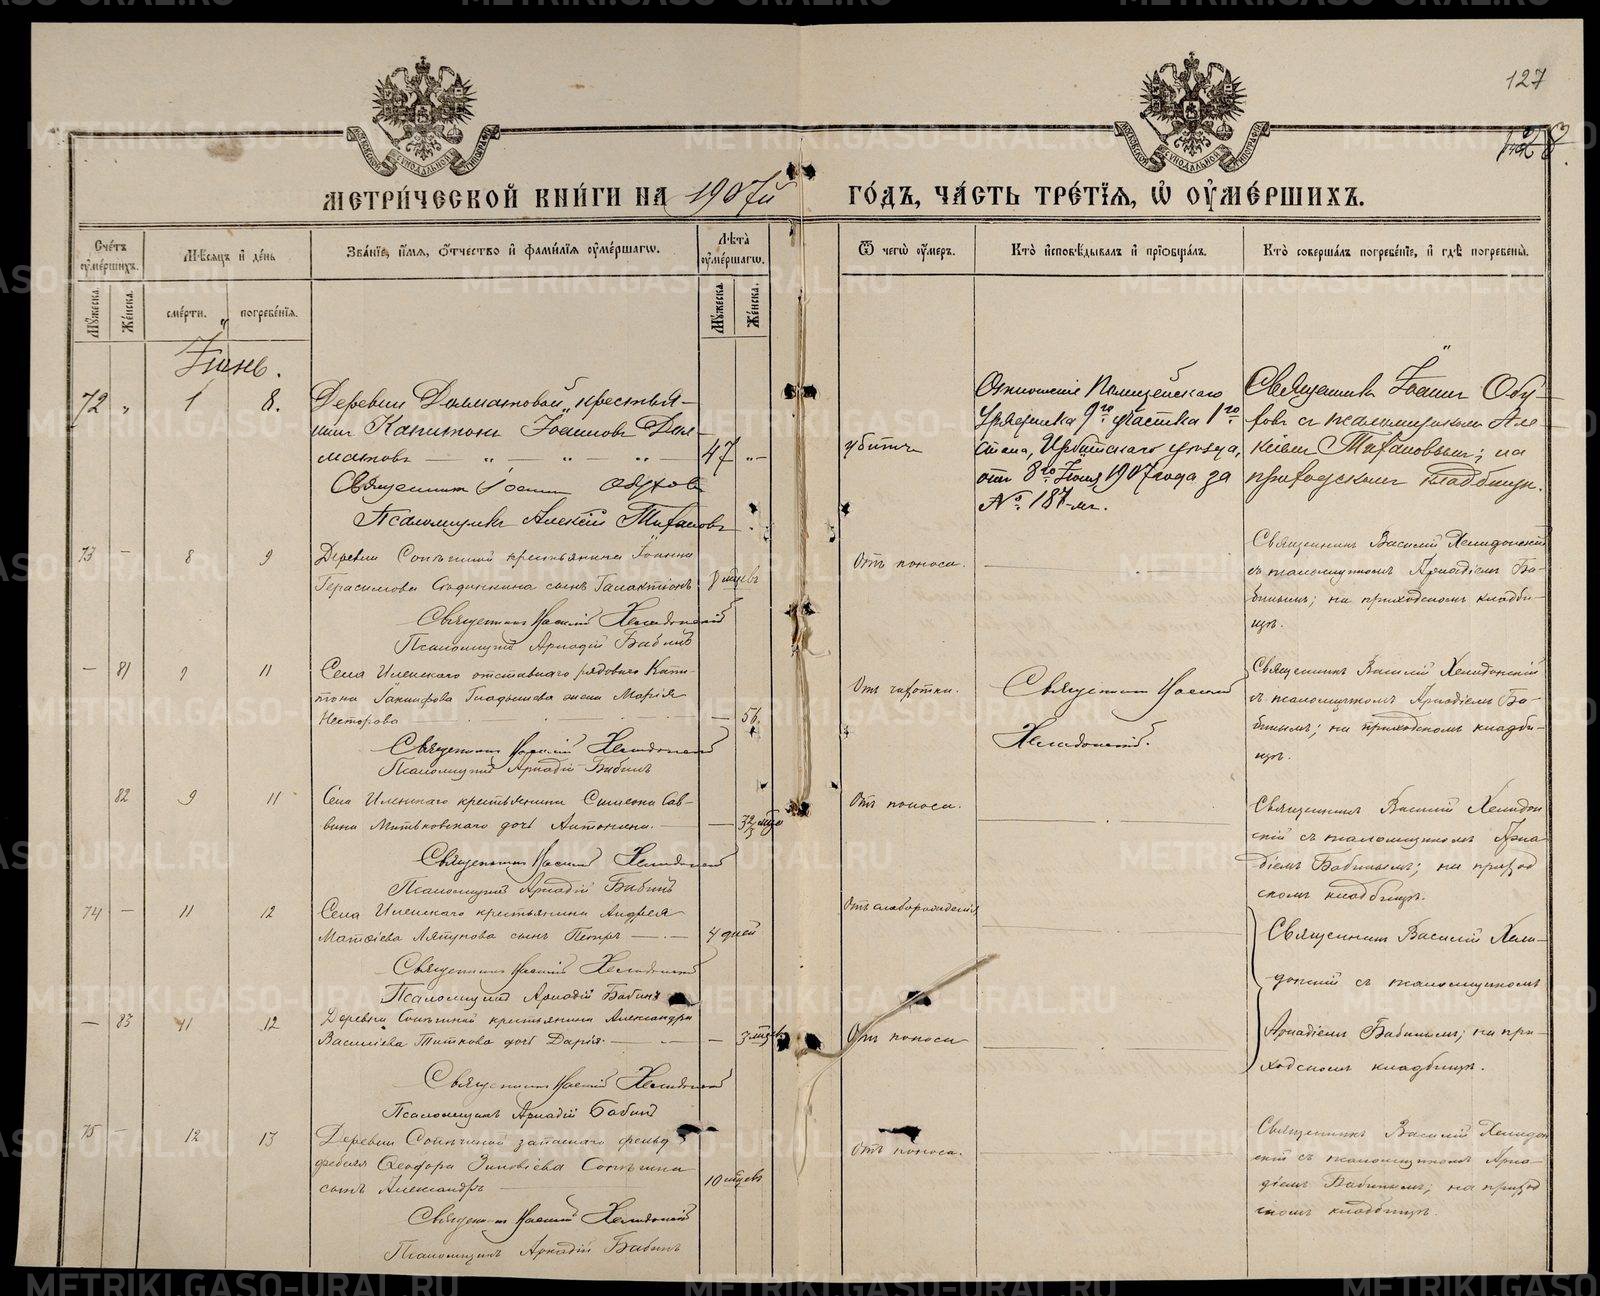 127
128.
МЕТРИ́ЧЕСКОЙ КНИ́ГИ НА 1907й ГО́ДЪ, ЧА́СТЬ ТРЕ́ТЇЯ, Ѡ҆ ОУ҆МЕ́РШИХЪ.
Сче́тъ оу҆ме́ршихъ.
Мꙋ́жеска.
Же́нска.
Мѣ́сяцъ и҆ де́нь
сме́рти.
погребе́нїя.
Зва́нїе, и҆́мя, ѻ҆́тчество и҆ фами́лїя оу҆ме́ршагѡ.
Лѣ́та оу҆ме́ршагѡ.
Мꙋ́жеска.
Же́нска.
Ѿ чегѡ̀ оу҆́меръ.
Кто̀ и҆сповѣ́дывалъ и҆ прїѡбща́лъ.
Кто̀ соверша́лъ погребе́нїе, и҆ гдѣ̀ погребены̀.
Іюнь.
72 " 1 8.
Деревни Долматовой, крестья-
нинъ Капитонъ Іоанновъ Дол-
матовъ — " — " — " — 47 "
Священникъ Іоаннъ Обуховъ
Псаломщикъ Алексій Тихановъ
убитъ
Отношеніе Полицейскаго
Урядника 9го участка 1го
стана, Ирбитскаго уѣзда,
отъ 8го Іюня 1907 года за
№ 187-мъ.
Священникъ Іоаннъ Обу-
ховъ съ псаломщикомъ Але-
ксіемъ Тихановымъ; на
приходскомъ кладбищѣ.
73 — 8 9
Деревни Сопѣгиной крестьянина Іоанна
Герасимова сынъ Галактіонъ 8 мцевъ
Священникъ Василій Хелидонскій
Псаломщикъ Аркадій Бабинъ
Отъ поноса.
Священникъ Василій Хелидонскій
съ псаломщикомъ Аркадіемъ Ба-
бинымъ; на приходскомъ кладби-
щѣ.
— 81 9 11
Села Иленскаго отставнаго рядового Капи-
тона Іакинфова Гладышева жена Марія
Несторова — 56.
Священникъ Василій Хелидонскій
Псаломщикъ Аркадій Бабинъ
Отъ чахотки.
Священникъ Василій
Хелидонскій.
Священникъ Василій Хелидонскій
съ псаломщикомъ Аркадіемъ Ба-
бинымъ; на приходскомъ кладби-
щѣ.
82 9 11
Села Иленскаго крестьянина Симеона Сав-
вина Митьковскаго дочь Антонина. —
Священникъ Василій Хелидонскій
Псаломщикъ Аркадій Бабинъ
Отъ поноса.
Священникъ Василій Хелидон
скій съ псаломщикомъ Арка-
діемъ Бабинымъ; на приход
скомъ кладбищѣ.
74 — 11 12
Села Иленскаго крестьянина Андрея
Матѳіева Ляпунова сынъ Петръ — 4 дней
Священникъ Василій Хелидонскій
Псаломщикъ Аркадій Бабинъ
Отъ слаборожденія
— 83 11 12
Деревни Сопѣгиной крестьянина Александра
Василіева Титкова дочь Дарія. — 3 мцевъ
Священникъ Василій Хелидонскій
Псаломщикъ Аркадій Бабинъ
Отъ поноса
Священникъ Василій Хели-
донскій съ псаломщикомъ
Аркадіемъ Бабинымъ; на при-
ходскомъ кладбищѣ.
75 — 12 13
Деревни Сопѣгиной запаснаго фельд
фебеля Ѳеодора Зиновіева Сопѣгина
сынъ Александръ 10 мцевъ
Священникъ Василій Хелидонскій
Псаломщикъ Аркадій Бабинъ
Отъ поноса.
Священникъ Василій Хелидон
скій съ псаломщикомъ Арка-
діемъ Бабинымъ; на приход
скомъ кладбищѣ.
METRIKI.GASO-URAL.RU